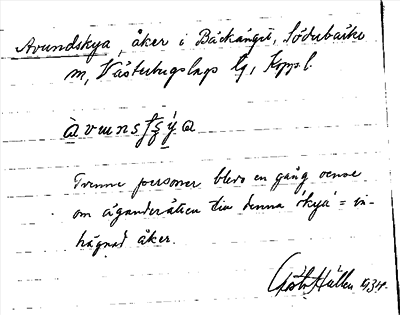 Avundskya, åker i Bäckänget, Söderbärke
sn, Västerbergslags tg, Kopp l.
Trenne personer blevo en gång oense
om äganderätten till denna 'kya' = in-
hägnad åker.
Gösta Hállen 1934.